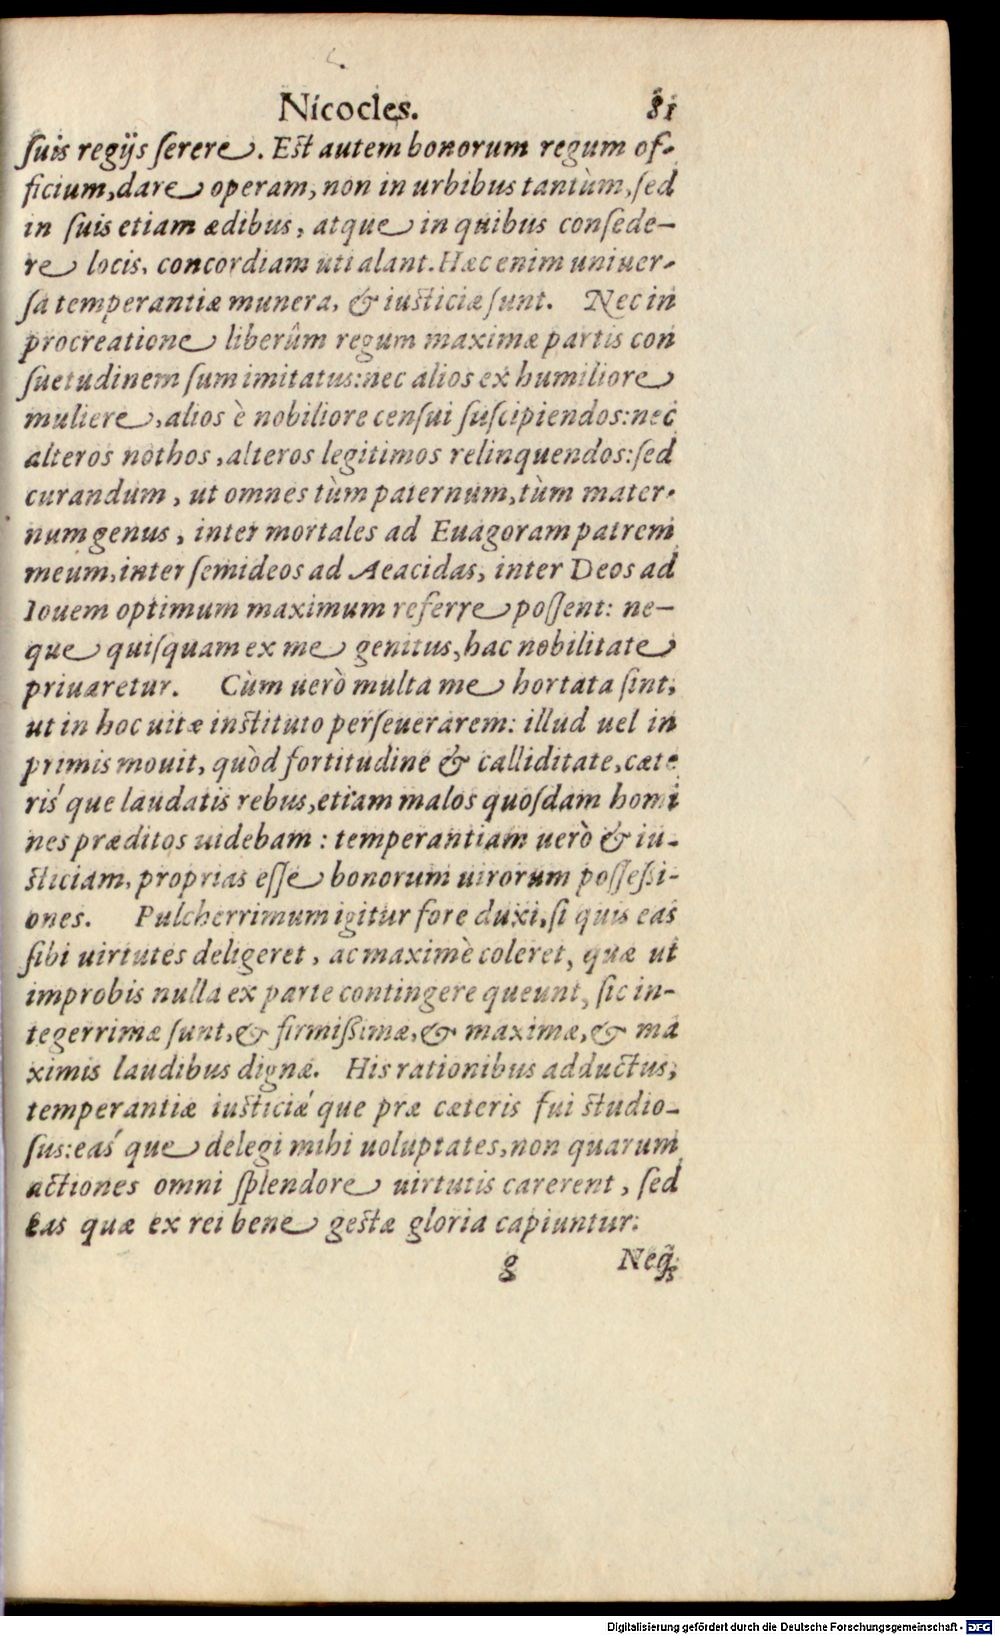 Nicocles. 81
ſuis regijs ſerere. Eſt autem bonorum regum of-
ficium, dare operam, non in urbibus tantùm, ſed
in ſuis etiam ædibus, atque in quibus conſede-
re locis, concordiam uti alant. Hæc enim uniuer-
ſa temperantiæ munera, & iuſticiæ ſunt. Nec in
procreatione liberûm regum maximæ partis con
ſuetudinem ſum imitatus: nec alios ex humiliore
muliere, alios è nobiliore cenſui ſuſcipiendos: nec
alteros nothos, alteros legitimos relinquendos: ſed
curandum, ut omnes tùm paternum, tùm mater-
num genus, inter mortales ad Euagoram patrem
meum, inter ſemideos ad Aeacidas, inter Deos ad
Iouem optimum maximum referre poſſent: ne-
que quiſquam ex me genitus, hac nobilitate
priuaretur. Cùm uerò multa me hortata ſint,
ut in hoc uitæ inſtituto perſeuerarem: illud uel in
primis mouit, quòd fortitudine & calliditate, cæte
ris´que laudatis rebus, etiam malos quoſdam homi
nes præditos uidebam: temperantiam uerò & iu-
ſticiam, proprias eſſe bonorum uirorum poſſeßi-
ones. Pulcherrimum igitur fore duxi, ſi quis eas
ſibi uirtutes deligeret, ac maximè coleret, quæ ut
improbis nulla ex parte contingere queunt, ſic in-
tegerrimæ ſunt, & firmißimæ, & maximæ, & ma
ximis laudibus dignæ. His rationibus adductus,
temperantiæ iuſticiæ´que præ cæteris fui ſtudio-
ſus: eas´que delegi mihi uoluptates, non quarum
actiones omni ſplendore uirtutis carerent, ſed
eas quæ ex rei bene geſtæ gloria capiuntur.
g Neq̃;
Digitalisierung gefördert durch die Deutsche Forschungsgemeinschaft - DFG